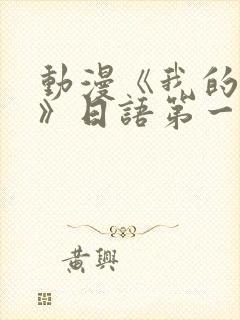 動漫《我的
》日語第一
黃興